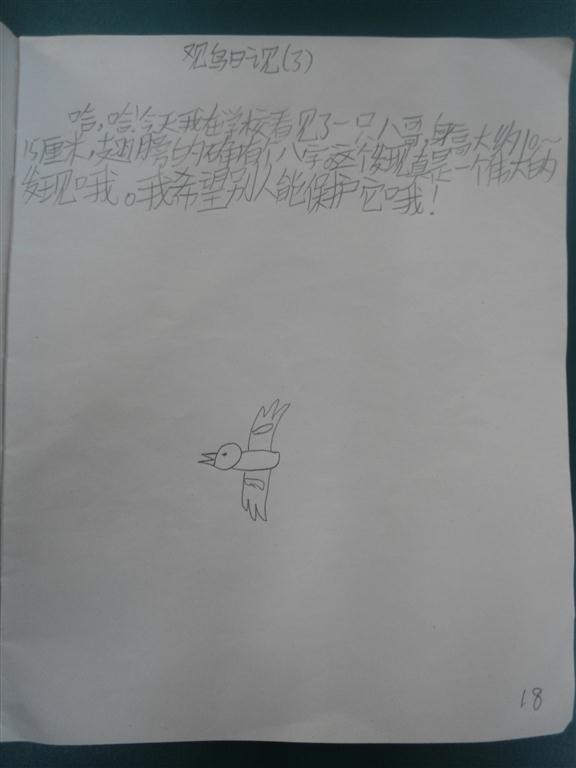 观鸟日记(3)
哈,哈!今天我在学校看见了一只八哥,身高大约10~
15厘米,翅膀的确有个八字,这个发现真是一个伟大的
发现哦。我希望别人能保护它哦!
18